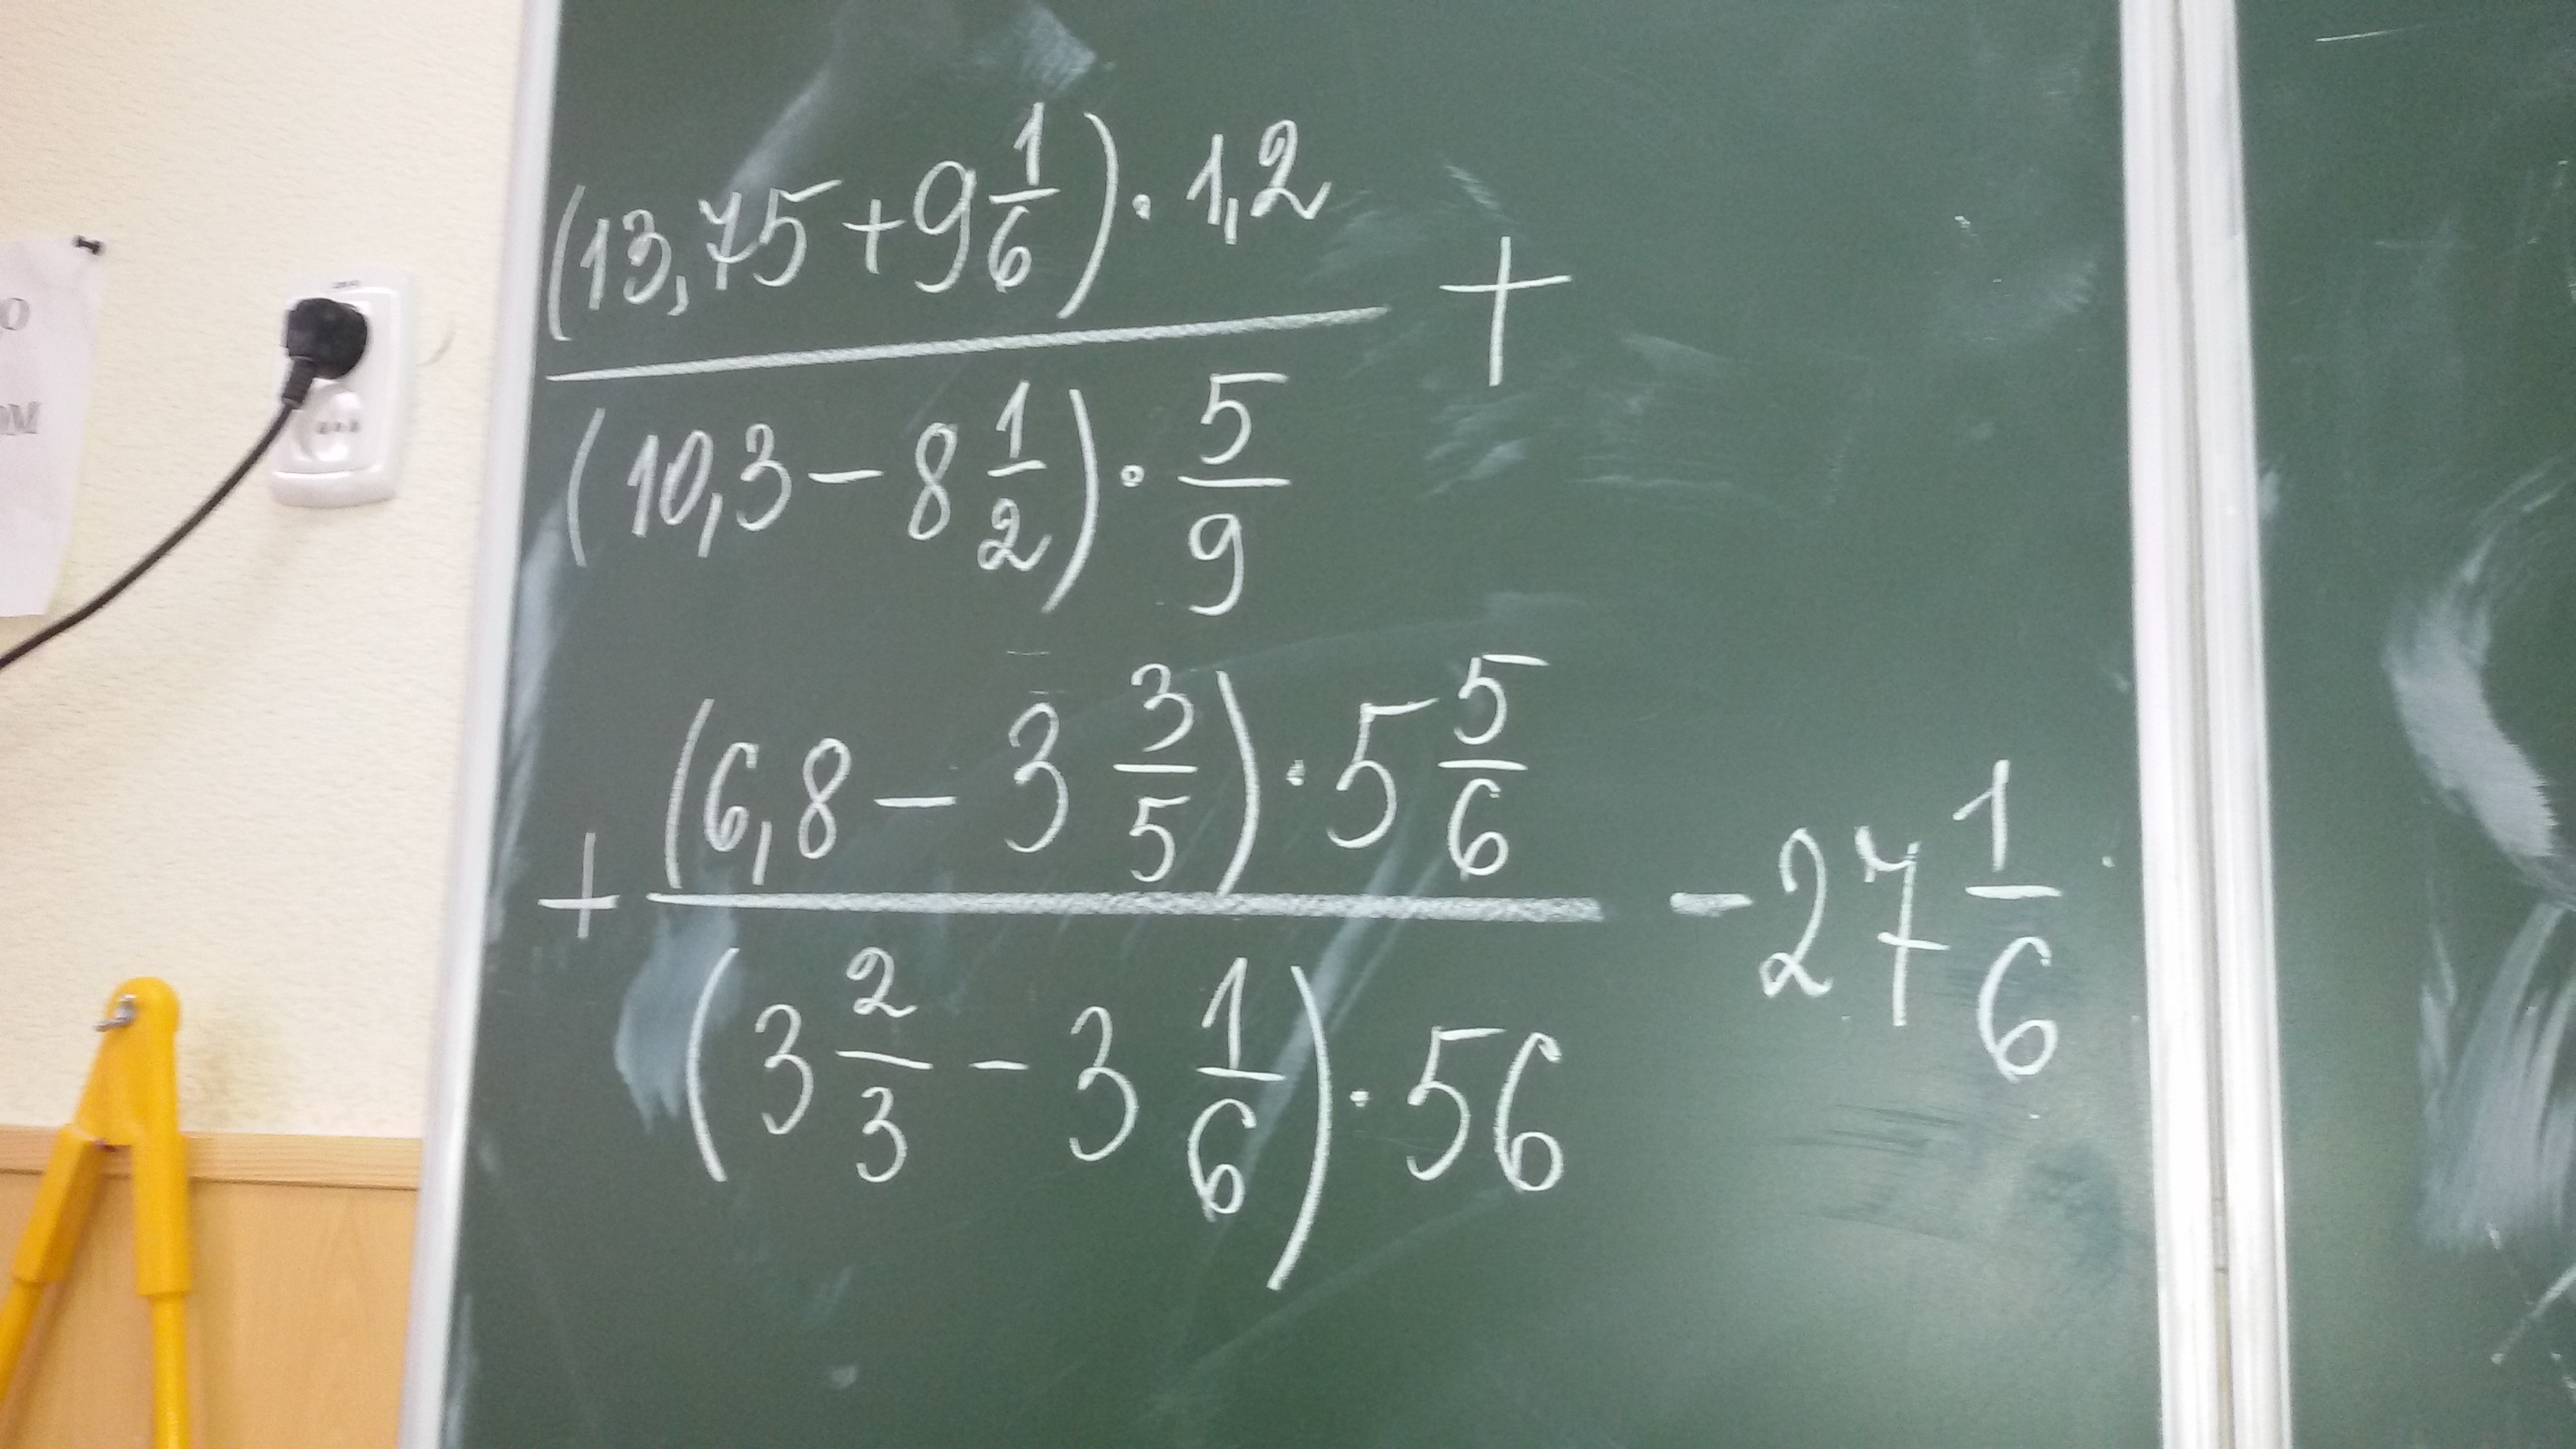 О
ОМ
(13,75 + 9 1/6) · 1,2
(10,3 − 8 1/2) · 5/9
+
+ (6,8 − 3 3/5) · 5 5/6
(3 2/3 − 3 1/6) · 56
− 27 1/6